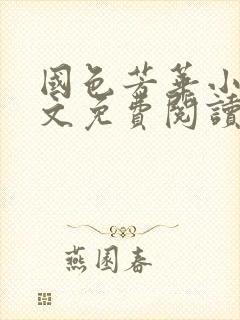 國色芳華小
文免費閱讀
燕國春